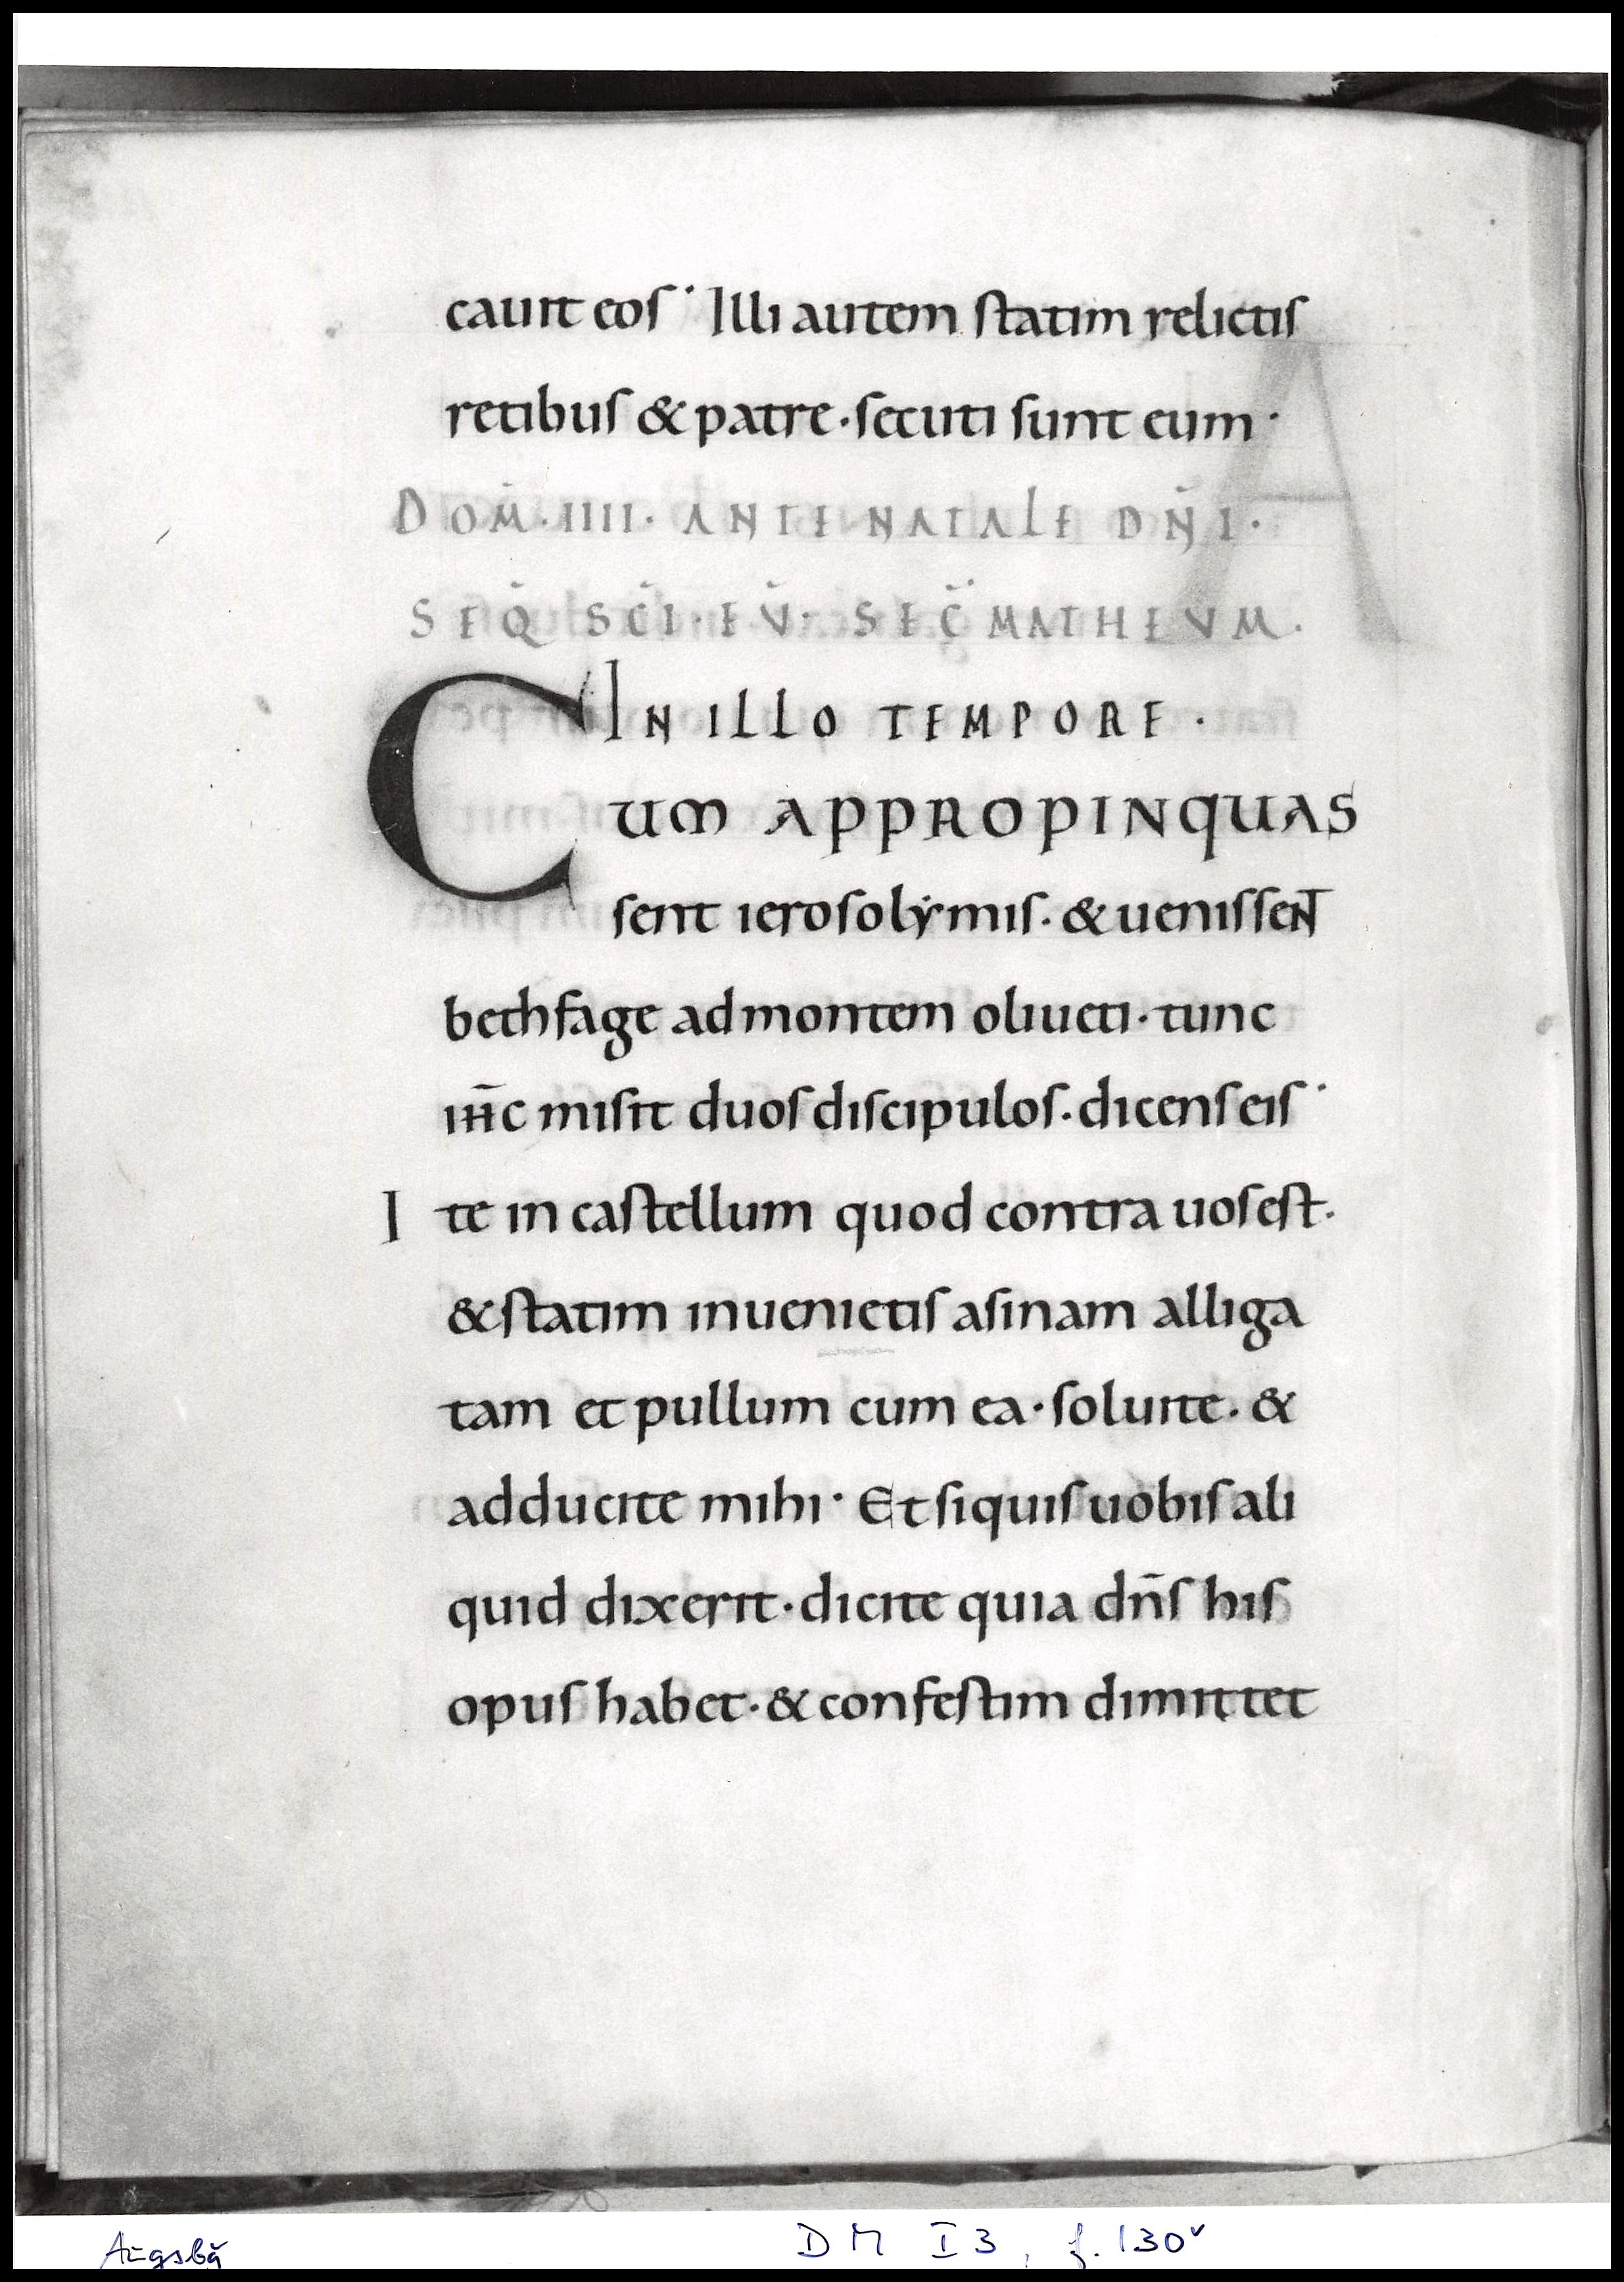 cauit eos · Illi autem statim relictis
retibus & patre · secuti sunt eum ·
DOM̄ · IIII · ANTE NATALE DN̄I ·
SEQ̄ SC̄I · EV̄ · SEC̄ MATHEVM ·
IN ILLO TEMPORE ·
CUM APPROPINQUAS
sent ierosolẏmis · & uenisseNT
bethfage ad montem oliueti · tunc
ih̄c misit duos discipulos · dicens eis ·
Ite in castellum quod contra uos est ·
& statim inuenietis asinam alliga
tam et pullum cum ea · soluite · &
adducite mihi · Et siquis uobis ali
quid dixerit · dicite quia dn̄s his
opus habet · & confestim dimittet
DM I 3, f. 130v